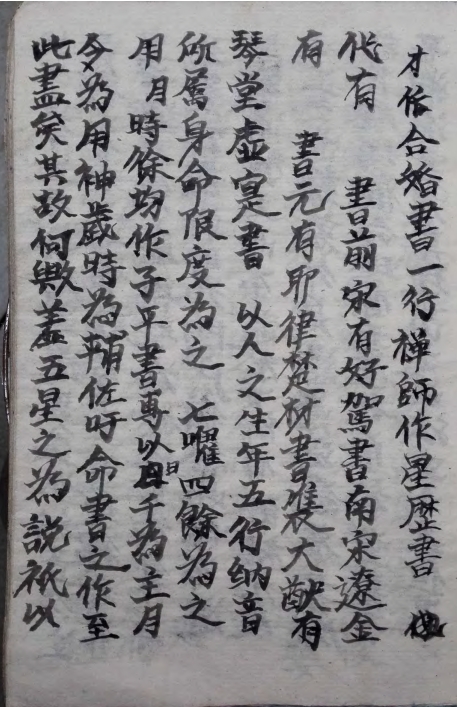 才俗合婚書一行禅師作星歴書
代有 書前宋有好駕書南宋遼金
有 書元有耶律楚材書裝大猷有
琴堂虛寔書 以人之生年五行納音
所属身命限度為之 七曜四餘為之
用月時徐均作子平書專以日千為主月
令為用神歲時為輔佐吁命書之作至
此盡矣其故何欤盖五星之為説祇以